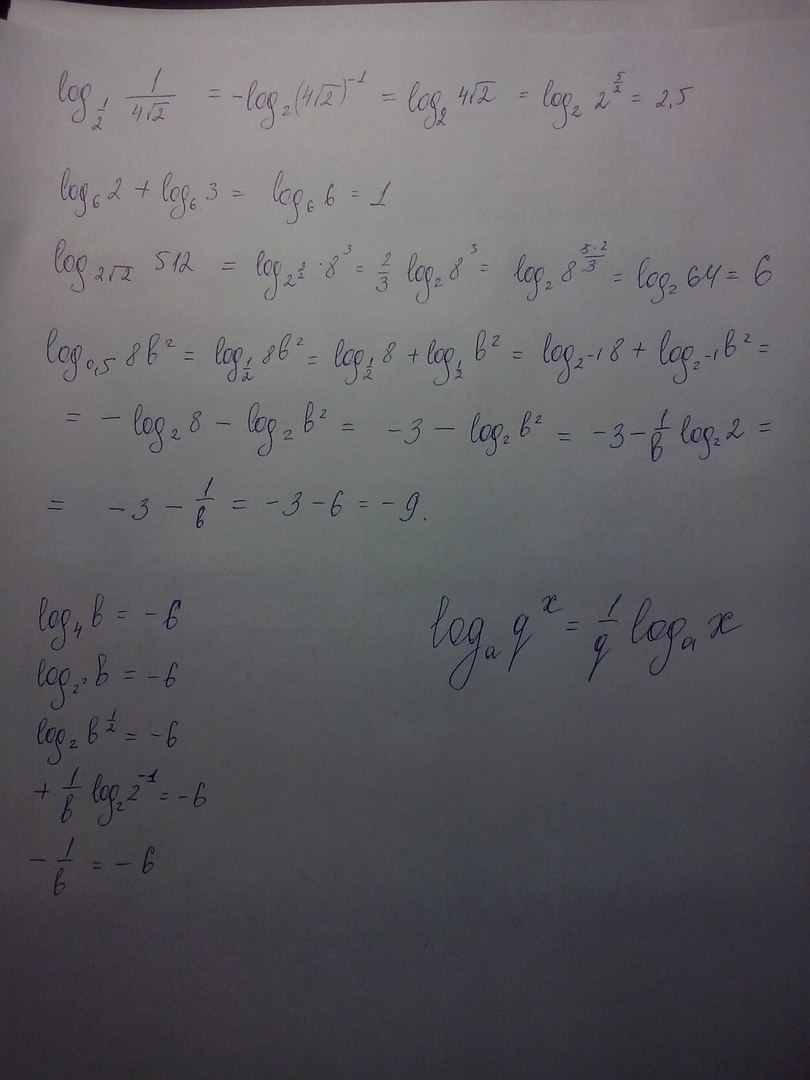 log_{1/2} 1/(4√2) = -log_2(4√2)^{-1} = log_2 4√2 = log_2 2^{5/2} = 2,5
log_6 2 + log_6 3 = log_6 6 = 1
log_{2√2} 512 = log_{2^{3/2}} · 8^3 = 2/3 log_2 8^3 = log_2 8^{3·2/3} = log_2 64 = 6
log_{0,5} 8b^2 = log_{1/2} 8b^2 = log_{1/2} 8 + log_{1/2} b^2 = log_{2^{-1}} 8 + log_{2^{-1}} b^2 =
= - log_2 8 - log_2 b^2 = -3 - log_2 b^2 = -3 - 1/b log_2 2 =
= -3 - 1/b = -3 - 6 = -9.
log_4 b = -6
log_{2^2} b = -6
log_2 b^{1/2} = -6
+ 1/b log_2 2^{-1} = -6
- 1/b = -6
log_a q^x = 1/q log_a x